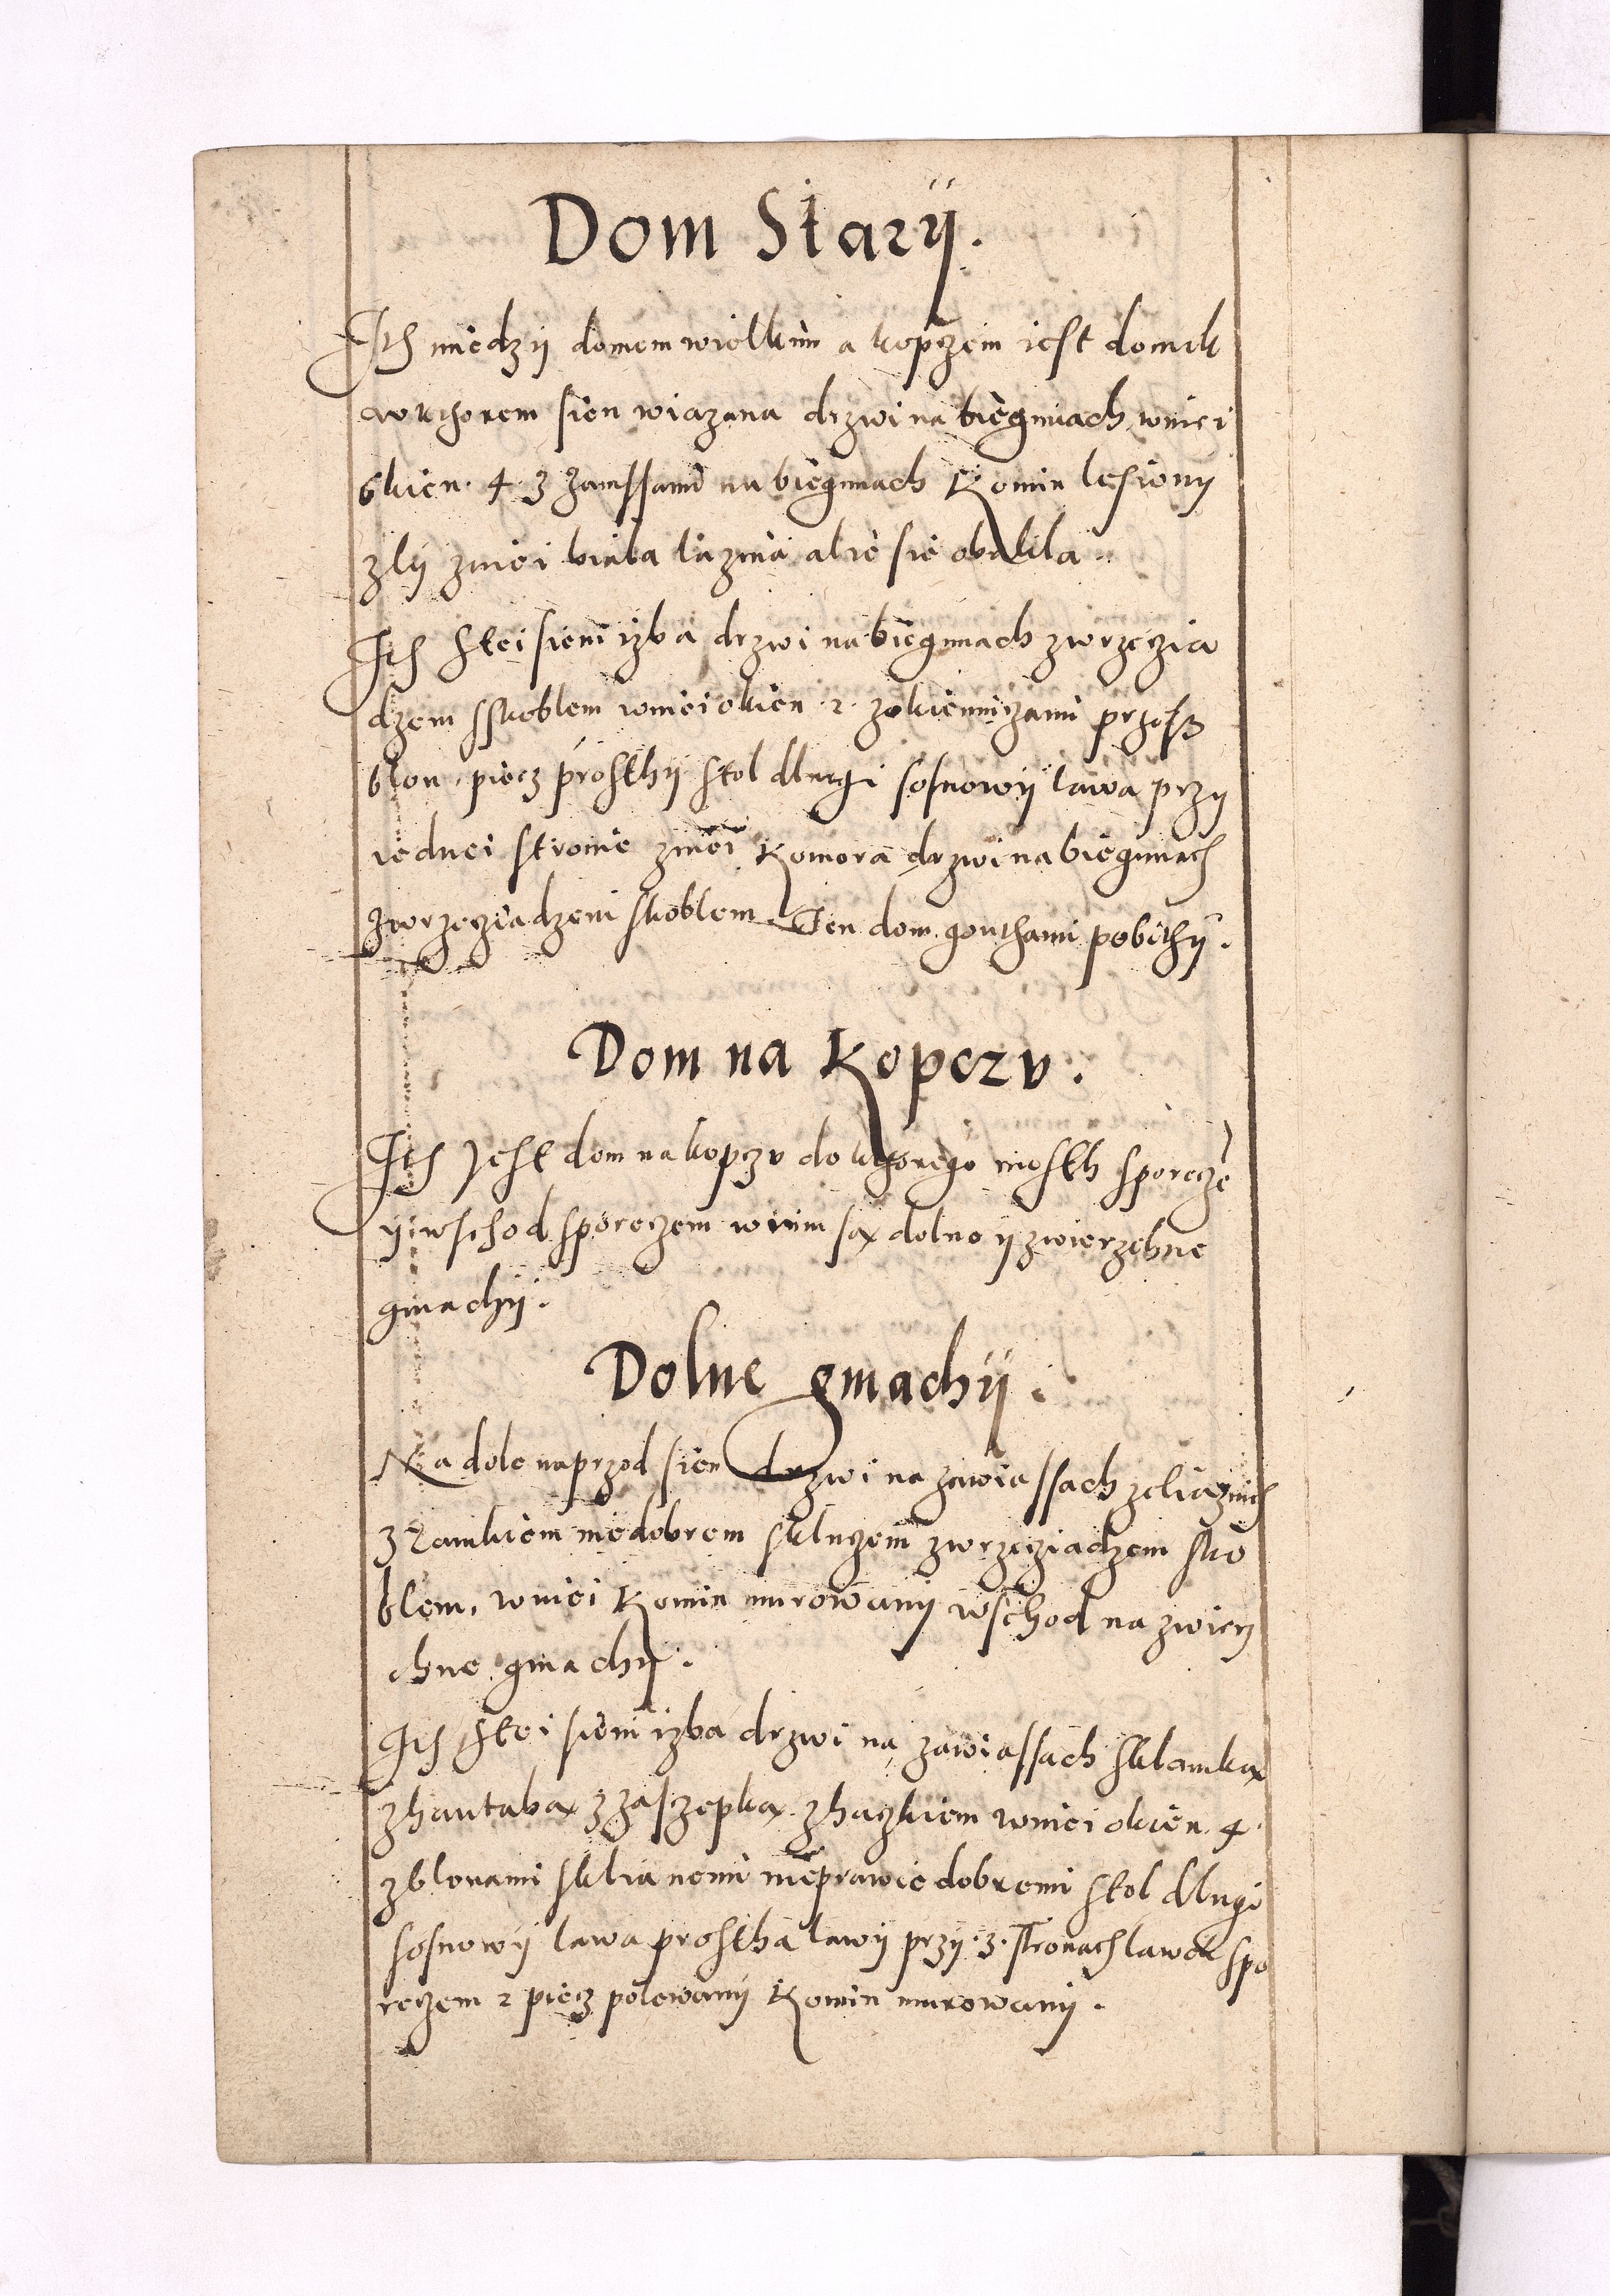 Dom Starÿ.
Ith miedzÿ domem wielkim a kopczem iest domek
w kthorem sien wiazana drzwi na biegunach, w niei
okien. 4. z zamssami na biegunach Komin lepionÿ
zlÿ z niei biala lazina alie sie obalila.
Ith stei sieni izba drzwi na biegunach z wrzeczia
dzem sskoblem w niei okien .2. z okienniczami przess
blon, piecz prosthÿ stol dlugi sosnowÿ lawa przÿ
iednei stronie z niei Komora drzwi na biegunach
z wrzecziadzem skoblem. Ten dom gonthami pobithÿ.
Dom na Kopczv.
Ith Jest dom na kopczv do kthorego mosth sporecze
ÿ wschod sporeczem w nim sax dolne ÿ zwierzchne
gmachÿ.
Dolne gmachÿ.
Na dole naprzod sien drzwi na zawiassach zeliaznich
z zamkiem niedobrem skluczem z wrzecziadzem sko
blem, w niei Komin murowanÿ wschod na zwierz
chne gmachÿ.
Ith stei sieni izba drzwi na zawiassach sklamkax
z hantabax z zasczepkax z haczkiem w niei okien .4.
z blonami sklianemi nieprawie dobremi stol dlugi
sosnowÿ lawa prostha lawÿ przÿ .3. stronach lawek spo
reczem 2 piecz polewanÿ Komin murowanÿ.